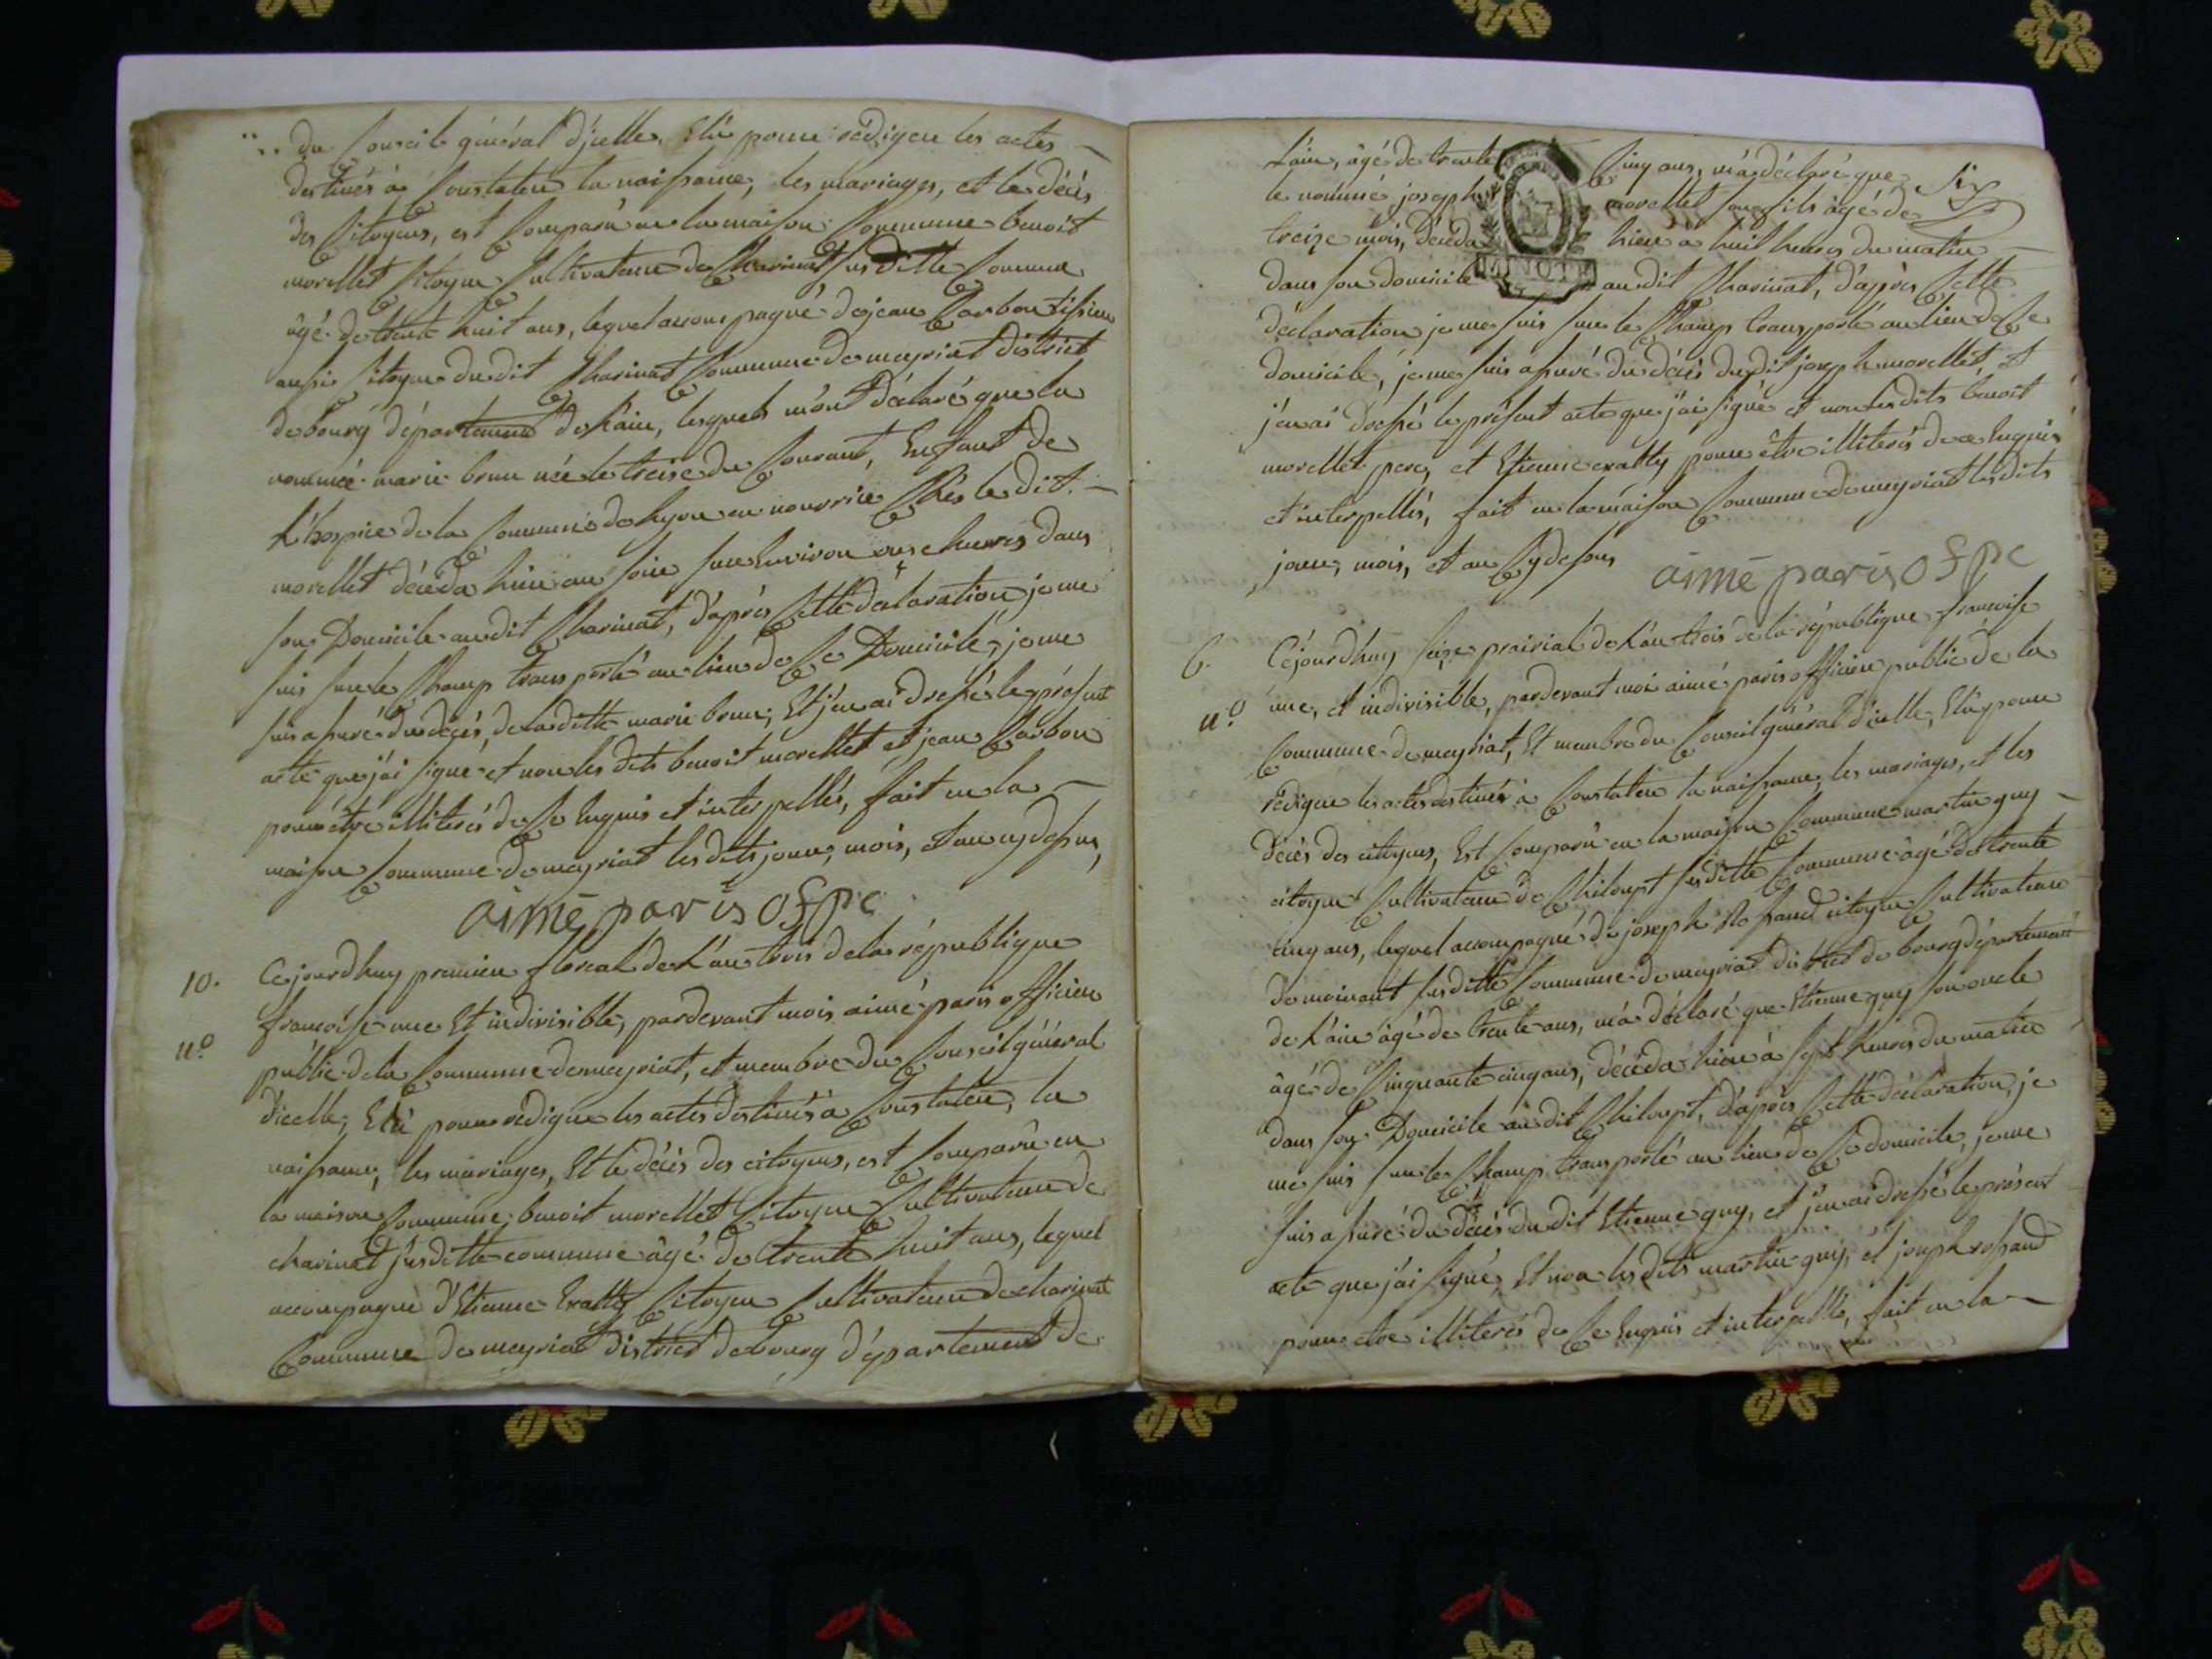 du Conseil général d'icelle, Elû pour rédiger les actes
destinés à Constater la naissance, les mariages, et le décès
des Citoyens, est Comparû en la maison Commune benoit
morellet Citoyen Cultivateur de Charinat susditte Commune
âgé de trente huit ans, lequel accompagné de jean Carbon
aussi Citoyen du dit Charinat Commune de meyriat district
de bourg département de L'ain, lesquels m'ont déclaré que la
nommée marie brun née le treise du Courant, Enfant de
L'hospice de la Commune de Lyon en nourrice Chés le dit
morellet décéda hier au soir sur Environ onze heures dans
son Domicile audit Charinat, d'après Cette déclaration je me
suis sur le Champ transporté au lieu de Ce Domicile, je me
suis assuré du décès, de laditte marie brun, Et j'en ai dressé le présent
acte que j'ai signé et non les dits benoit morellet et jean Carbon
pour être illiterés de Ce Enquis et interpellés, fait en la
maison Commune de meyriat les dits jour, mois, et an cy dessus,
aimé paris ofpc
10. Cejourdhuy premier floreal de L'an trois de la république
françoise une Et indivisible, pardevant mois aimé paris officier
n.o public de la Commune de meyriat, et membre du Conseil général
d'icelle, Elû pour rédiger les actes destinés à Constater, la
naissance, les mariages, Et le décès des citoyens, est Comparû en
la maison Commune, benoit morellet Citoyen Cultivateur de
charinat susditte commune âgé de trente huit ans, lequel
accompagné d'Etienne Exatty Citoyen Cultivateur de charinat
Commune de meyriat district de bourg département de
L'ain, âgé de trente Cinq ans, m'a déclaré que Six
le nommé joseph morellet son fils âgé de
treize mois, décéda hier à huit heures du matin
MINUTE
dans son domicile audit Charinat, d'après Cette
déclaration je me suis sur le Champ transporté au lieu de Ce
domicile, je me suis assuré du décès dudit joseph morellet, et
j'en ai dressé le présent acte que j'ai signé et non lesdits benoit
morellet pere, et Etienne exatty pour être illiterés de ce Enquis
et interpellés, fait en la maison Commune de meyriat les dits
jour, mois, et an Cy dessus
aimé paris ofpc
6. Céjourdhuy seize prairial de L'an trois de la république francoise
une, et indivisible, pardevant moi aimé paris officier public de la
n.o Commune de meyriat, Et membre du Conseil général d'icelle, Elû pour
rédiger les actes destinés à Constater la naissance, les mariages, et les
décès des citoyens, Est Comparû en la maison Commune martin guy
citoyen Cultivateur de Chiloupt susditte Commune âgé de trente
cinq ans, lequel accompagné de joseph Rossand citoyen Cultivateur
demeurant susditte Commune de meyriat district de bourg département
de L'ain âgé de trente ans, m'a déclaré que Etienne guy son oncle
âgé de Cinquante cinq ans, décéda hier à sept heures du matin
dans son Domicile au dit Chiloupt, d'après Cette déclaration, je
me suis sur le Champ transporté au lieu de Ce domicile, je me
suis assuré du décés du dit Etienne guy, et j'en ai dressé le présent
acte que j'ai signé, Et non les dits martin guy, et joseph rossand
pour etre illiterés de Ce Enquis et interpellé, fait en la